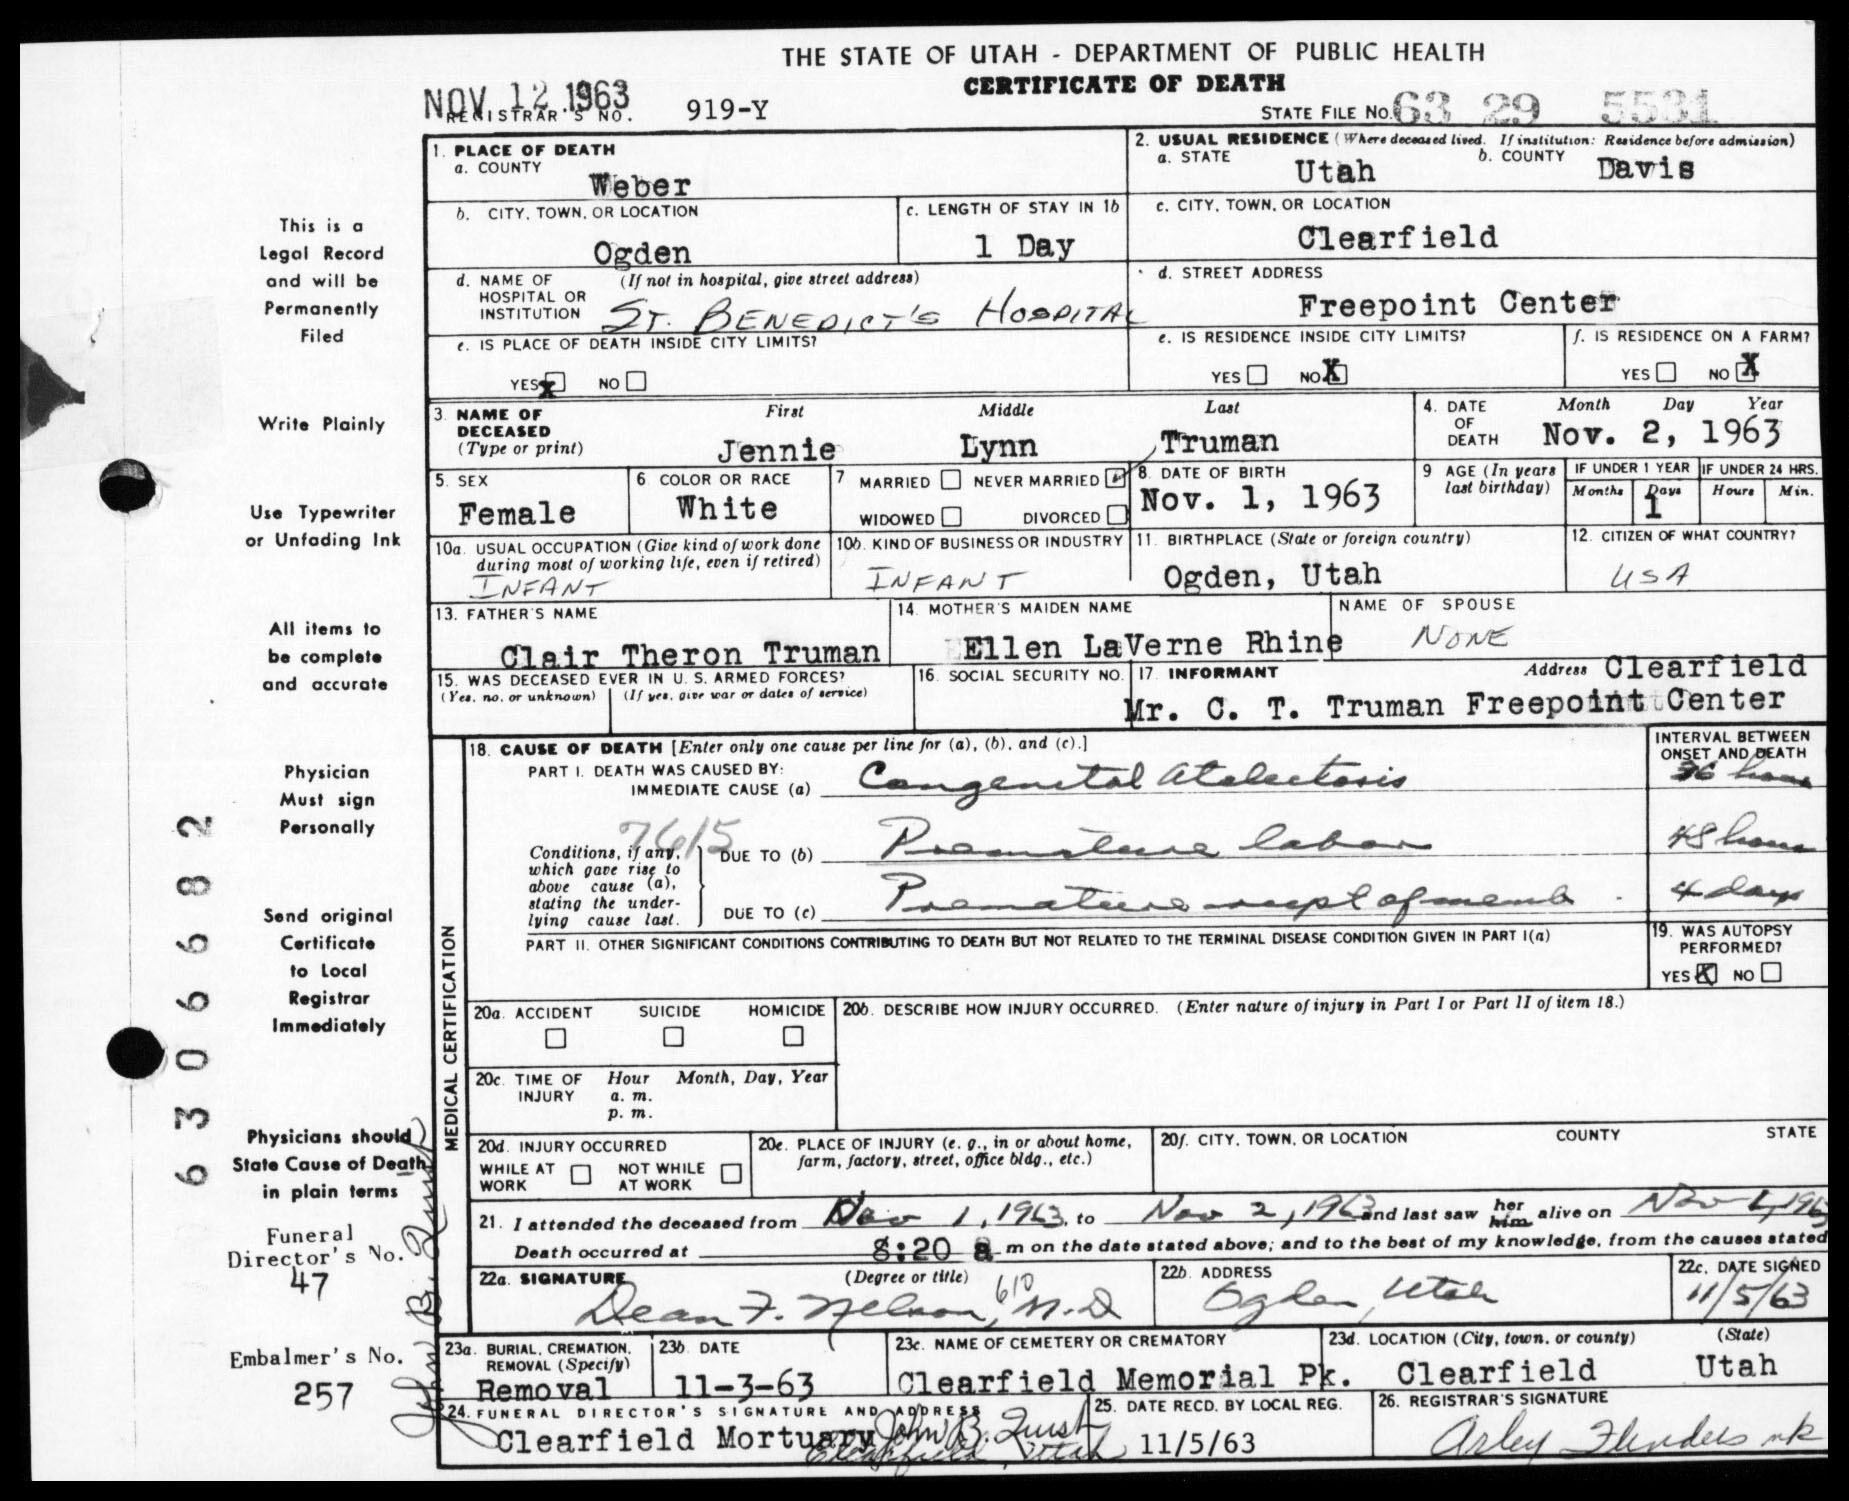 THE STATE OF UTAH - DEPARTMENT OF PUBLIC HEALTH
CERTIFICATE OF DEATH
NOV 12 1963
REGISTRAR'S NO. 919-Y
STATE FILE NO. 63 29 5531
1. PLACE OF DEATH
a. COUNTY
Weber
2. USUAL RESIDENCE (Where deceased lived. If institution: Residence before admission)
a. STATE Utah b. COUNTY Davis
b. CITY, TOWN, OR LOCATION
Ogden
c. LENGTH OF STAY IN 1b
1 Day
c. CITY, TOWN, OR LOCATION
Clearfield
d. NAME OF HOSPITAL OR INSTITUTION (If not in hospital, give street address)
ST. BENEDICT'S HOSPITAL
d. STREET ADDRESS
Freepoint Center
e. IS PLACE OF DEATH INSIDE CITY LIMITS?
YES X NO
e. IS RESIDENCE INSIDE CITY LIMITS?
YES NO X
f. IS RESIDENCE ON A FARM?
YES NO X
3. NAME OF DECEASED (Type or print)
First Middle Last
Jennie Lynn Truman
4. DATE OF DEATH Month Day Year
Nov. 2, 1963
5. SEX
Female
6. COLOR OR RACE
White
7 MARRIED NEVER MARRIED
WIDOWED DIVORCED
8. DATE OF BIRTH
Nov. 1, 1963
9 AGE (In years last birthday)
IF UNDER 1 YEAR IF UNDER 24 HRS.
Months Days Hours Min.
1
10a. USUAL OCCUPATION (Give kind of work done during most of working life, even if retired)
INFANT
10b. KIND OF BUSINESS OR INDUSTRY
INFANT
11. BIRTHPLACE (State or foreign country)
Ogden, Utah
12. CITIZEN OF WHAT COUNTRY?
USA
13. FATHER'S NAME
Clair Theron Truman
14. MOTHER'S MAIDEN NAME
Ellen LaVerne Rhine
NAME OF SPOUSE
NONE
15. WAS DECEASED EVER IN U. S. ARMED FORCES?
(Yes, no, or unknown) (If yes, give war or dates of service)
16. SOCIAL SECURITY NO.
17. INFORMANT Address Clearfield
Mr. C. T. Truman Freepoint Center
MEDICAL CERTIFICATION
18. CAUSE OF DEATH [Enter only one cause per line for (a), (b), and (c).]
INTERVAL BETWEEN ONSET AND DEATH
PART I. DEATH WAS CAUSED BY:
IMMEDIATE CAUSE (a) Congenital Atelectasis 36 hours
7615
Conditions, if any, which gave rise to above cause (a), stating the underlying cause last.
DUE TO (b) Premature labor 48 hours
DUE TO (c) Premature rupt of memb 4 days
PART II. OTHER SIGNIFICANT CONDITIONS CONTRIBUTING TO DEATH BUT NOT RELATED TO THE TERMINAL DISEASE CONDITION GIVEN IN PART I(a)
19. WAS AUTOPSY PERFORMED?
YES X NO
20a. ACCIDENT SUICIDE HOMICIDE
20b. DESCRIBE HOW INJURY OCCURRED. (Enter nature of injury in Part I or Part II of item 18.)
20c. TIME OF INJURY Hour Month, Day, Year
a. m.
p. m.
20d. INJURY OCCURRED
WHILE AT WORK NOT WHILE AT WORK
20e. PLACE OF INJURY (e. g., in or about home, farm, factory, street, office bldg., etc.)
20f. CITY, TOWN, OR LOCATION COUNTY STATE
21. I attended the deceased from Nov 1, 1963, to Nov 2, 1963 and last saw her him alive on Nov 1, 1963
Death occurred at 8:20 a m on the date stated above; and to the best of my knowledge, from the causes stated
22a. SIGNATURE (Degree or title) 610
Dean F. Nelson, M.D
22b. ADDRESS
Ogden, Utah
22c. DATE SIGNED
11/5/63
23a. BURIAL, CREMATION, REMOVAL (Specify)
Removal
23b. DATE
11-3-63
23c. NAME OF CEMETERY OR CREMATORY
Clearfield Memorial Pk.
23d. LOCATION (City, town, or county) (State)
Clearfield Utah
24. FUNERAL DIRECTOR'S SIGNATURE AND ADDRESS
Clearfield Mortuary John B. Quist
Clearfield, Utah
25. DATE RECD. BY LOCAL REG.
11/5/63
26. REGISTRAR'S SIGNATURE
Arley Flinders
This is a
Legal Record
and will be
Permanently
Filed
Write Plainly
Use Typewriter
or Unfading Ink
All items to
be complete
and accurate
Physician
Must sign
Personally
Send original
Certificate
to Local
Registrar
Immediately
Physicians should
State Cause of Death
in plain terms
Funeral
Director's No.
47
Embalmer's No.
257
John B. Quist
63066682